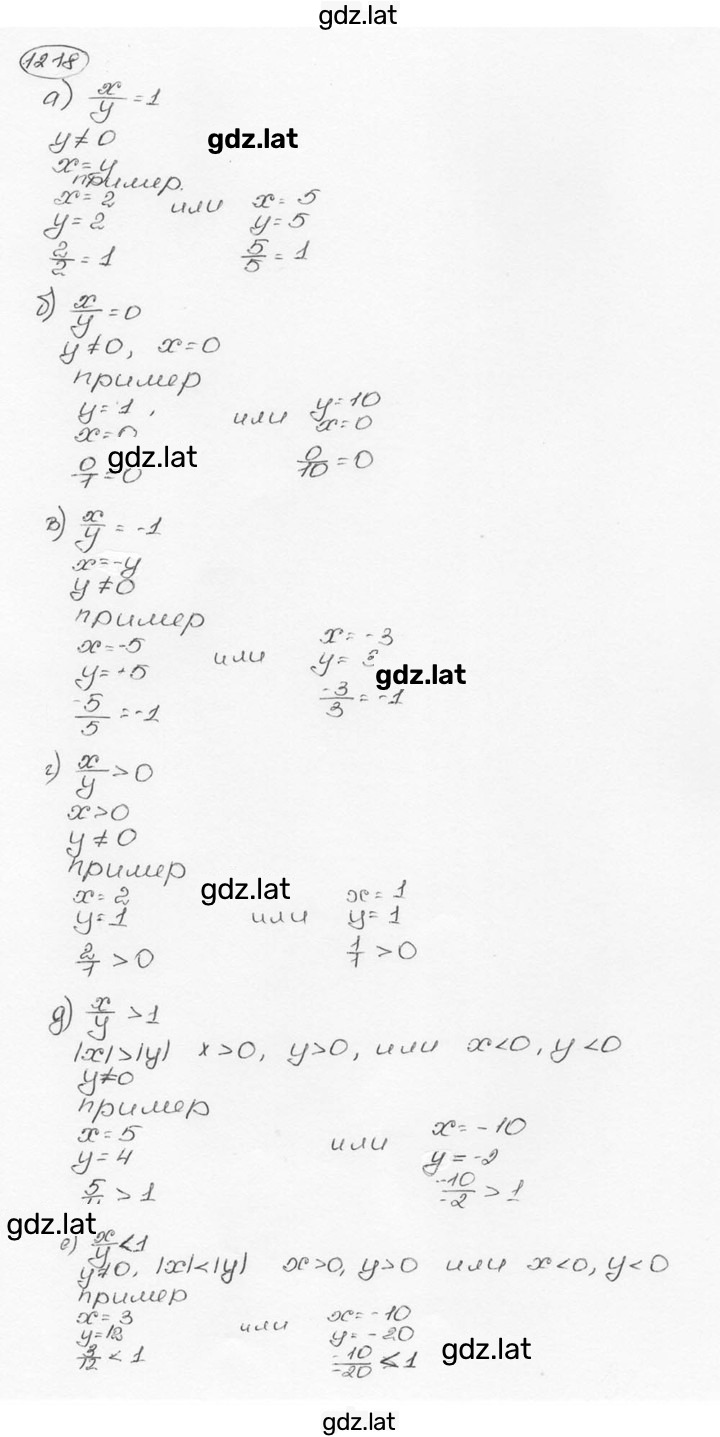 gdz.lat
1218
а) x/y = 1
y ≠ 0 gdz.lat
x = y
пример.
x = 2 или x = 5
y = 2 y = 5
2/2 = 1 5/5 = 1
б) x/y = 0
y ≠ 0, x = 0
пример
y = 1, или y = 10
x = 0 x = 0
0/1 = 0 gdz.lat 0/10 = 0
в) x/y = -1
x = -y
y ≠ 0
пример
x = -5 или x = -3
y = +5 y = 3 gdz.lat
-5/5 = -1 -3/3 = -1
г) x/y > 0
x > 0
y ≠ 0
пример gdz.lat
x = 2 или x = 1
y = 1 y = 1
2/1 > 0 1/1 > 0
д) x/y > 1
|x| > |y| x > 0, y > 0, или x < 0, y < 0
y ≠ 0
пример
x = 5 или x = -10
y = 4 y = -2
5/ > 1 -10/-2 > 1
gdz.lat
е) x/y < 1
y ≠ 0, |x| < |y| x > 0, y > 0 или x < 0, y < 0
пример
x = 3 или x = -10
y = 12 y = -20
3/12 < 1 -10/-20 < 1 gdz.lat
gdz.lat